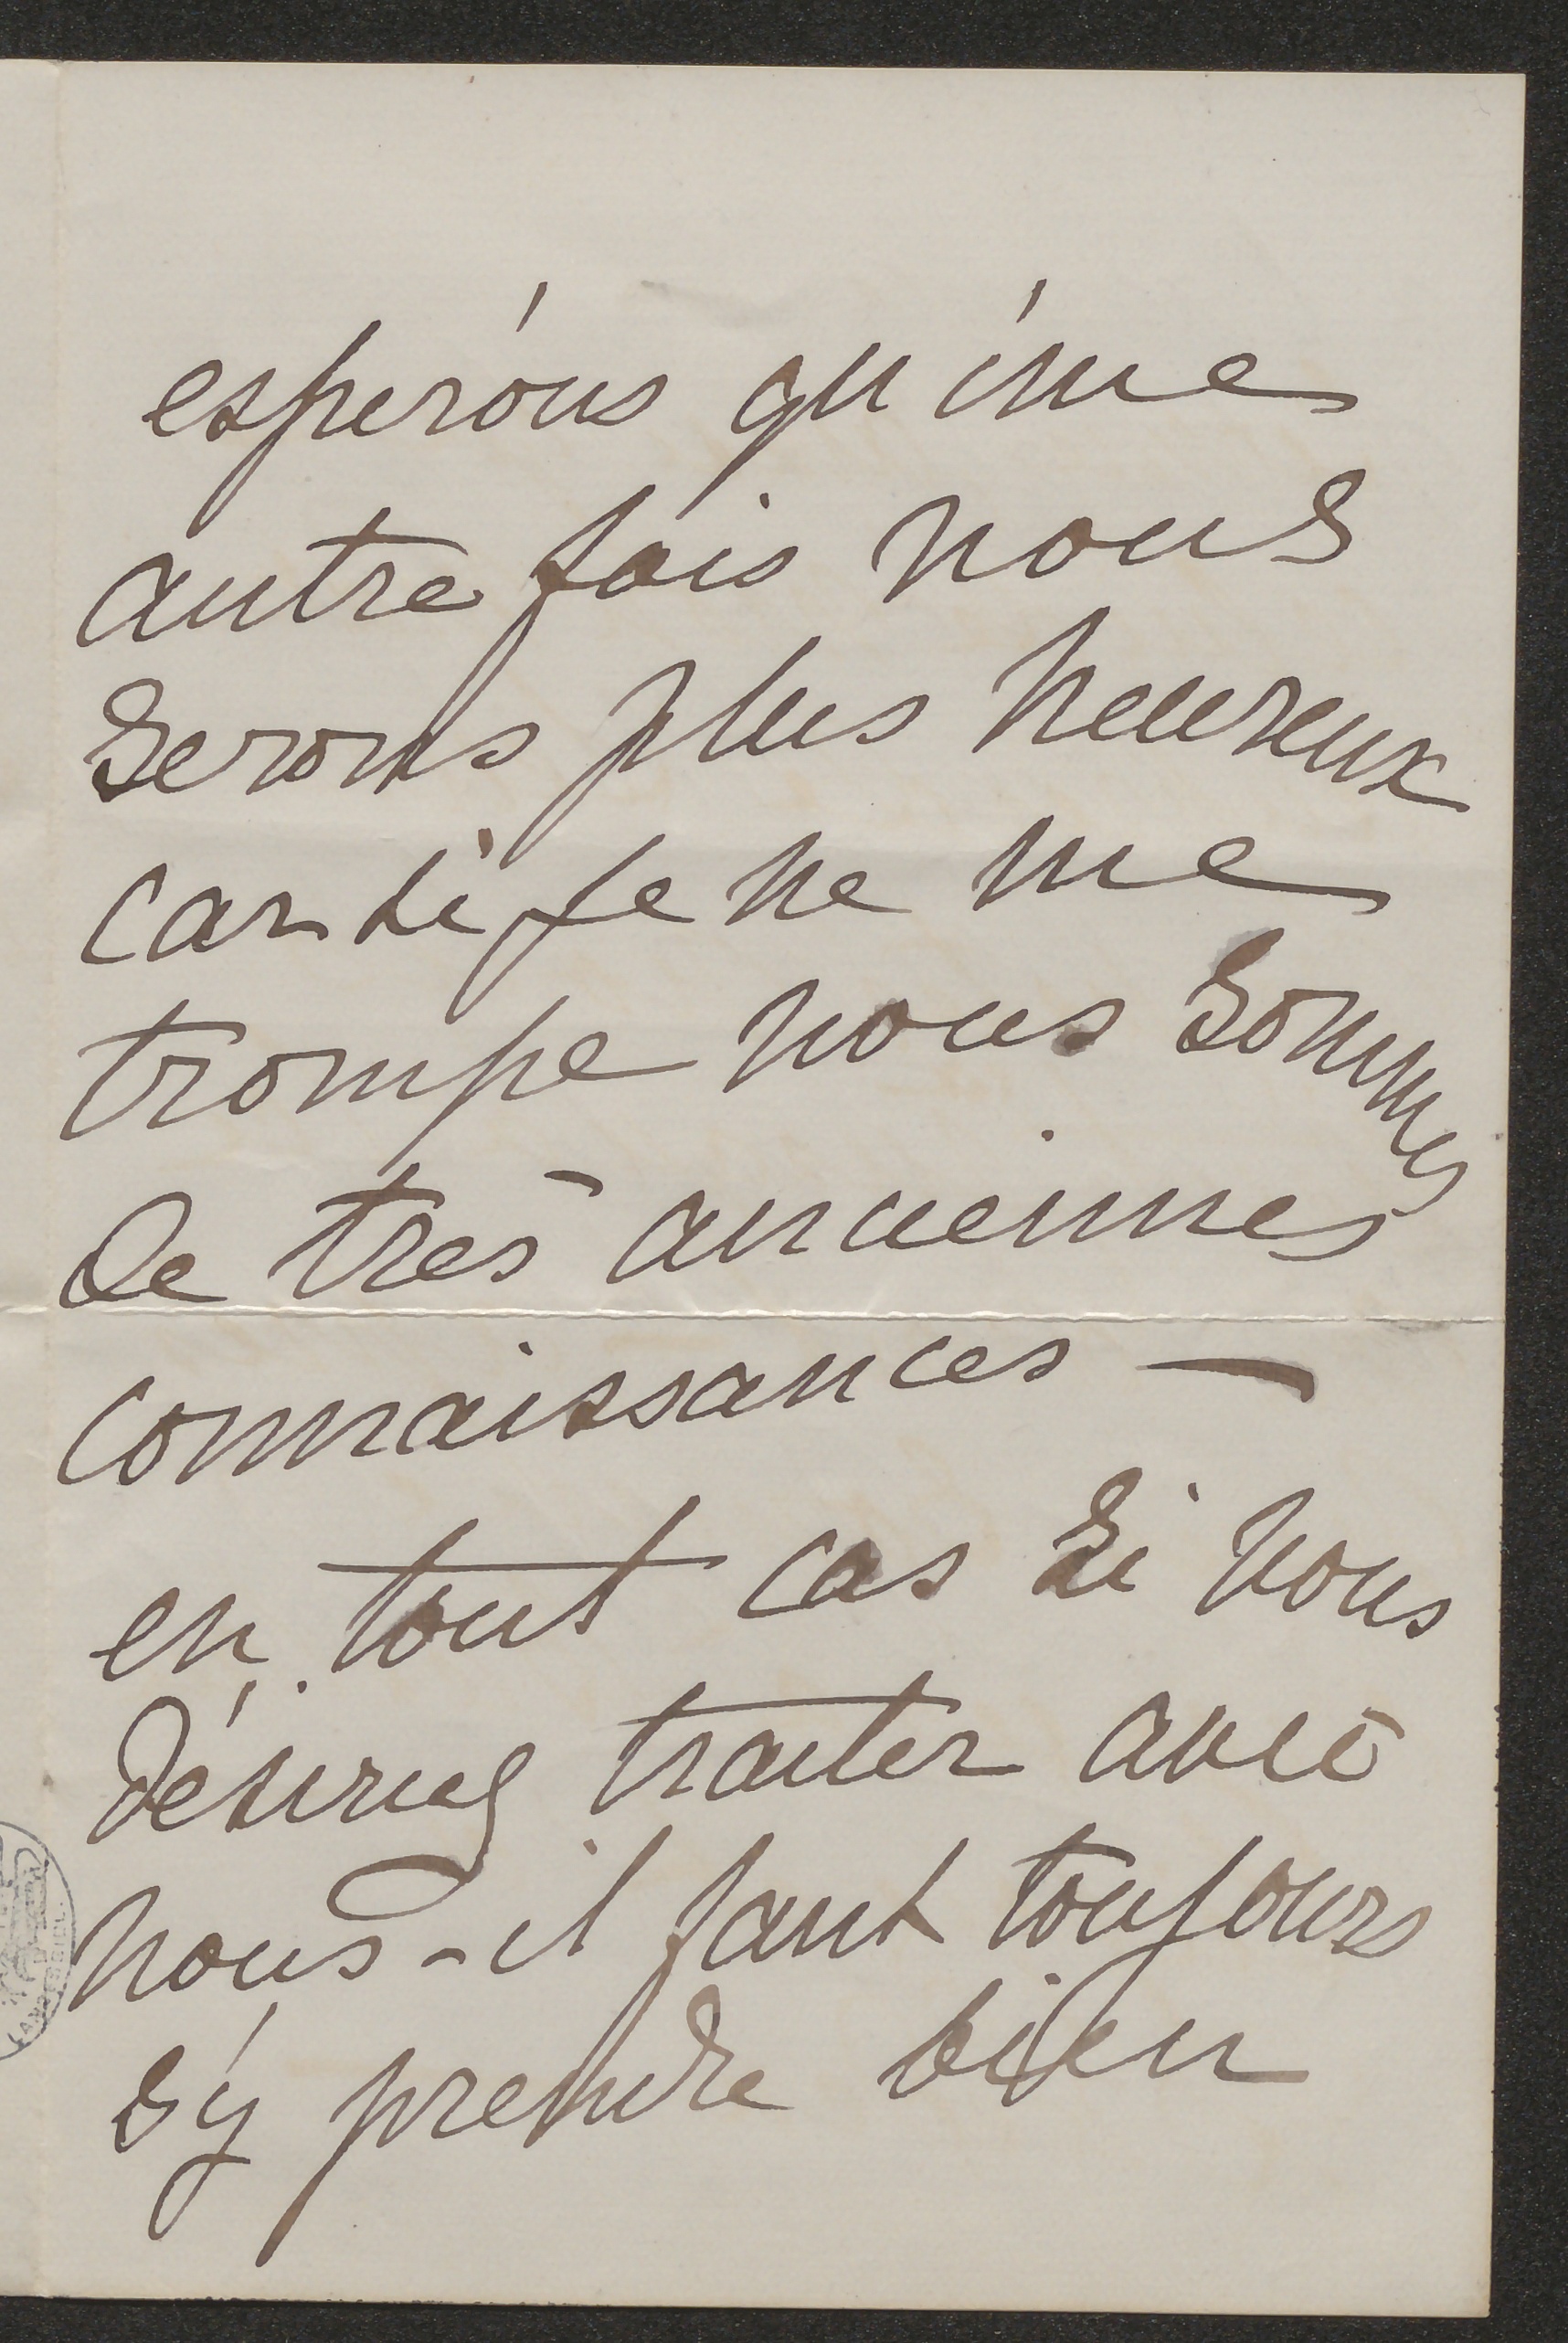 espérons qu'une
autre fois nous
serons plus heureux
car si je ne me
trompe nous sommes
de très anciennes
connaissances —
en tout cas si vous
désirez traiter avec
nous - il faut toujours
s'y prendre bien